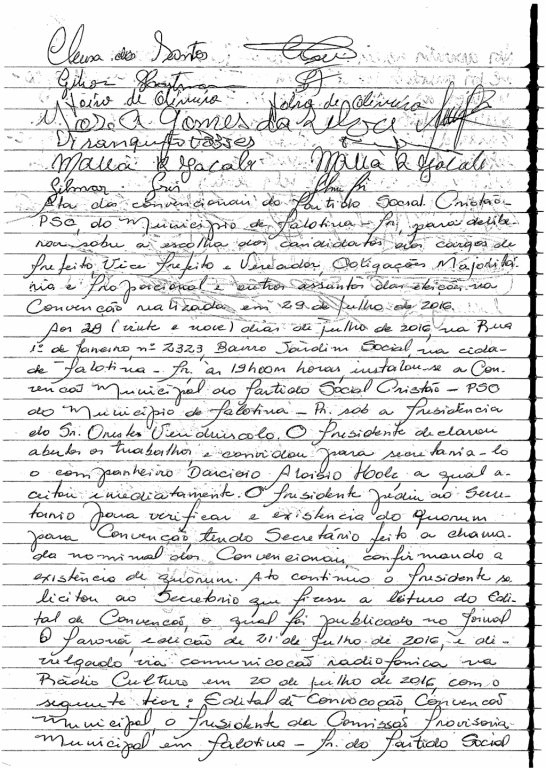 Cleusa dos Santos
Nairo de Oliveira Nairo de Oliveira
Gomes da
Gilmar
Ata dos convencionais do Partido Social Cristão-
PSC, do Município de Palotina - Pr, para delibe-
rou sobre a escolha dos candidatos aos cargos de
Prefeito, Vice Prefeito e Vereador, Obrigações Majoritá-
ria e Proporcional e outros assuntos das eleições na
Convenção realizada em 29 de julho de 2016.
Aos 29 (vinte e nove) dias de julho de 2016, na Rua
1º de Janeiro, nº 2323 Bairro Jardim Social, na cida-
de Palotina - Pr, às 19h00m horas, instalou-se a Con-
venção Municipal do Partido Social Cristão - PSC
do Município de Palotina - Pr. sob a Presidência
do Sr. Orestes Vendruscolo. O Presidente declarou
abertos os trabalhos e convidou para secretaria-lo
o companheiro Darcisio Aloisio a qual a-
ceitou imediatamente. O Presidente pediu ao Secre-
tário para verificar e existência do quorum
para Convenção tendo Secretário feito a chama-
da nominal dos Convencionais, confirmando a
existência de quorum. Ato continuo o Presidente so-
licitou ao Secretario que fizesse a leitura do Edi-
tal de Convenção, o qual foi publicado no Jornal
O Paraná, edição de 21 de julho de 2016, e di-
vulgado via comunicação radiofônica na
Rádio Cultura em 20 de julho de 2016, com o
seguinte teor: Edital de Convocação, Convenção
Municipal, o Presidente da Comissão Provisoria
Municipal em Palotina - Pr. do Partido Social